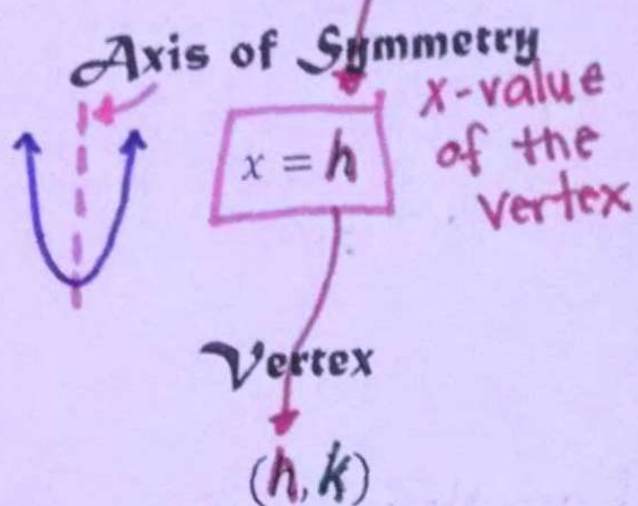 Axis of Symmetry
x = h
x-value
of the
vertex
Vertex
(h, k)